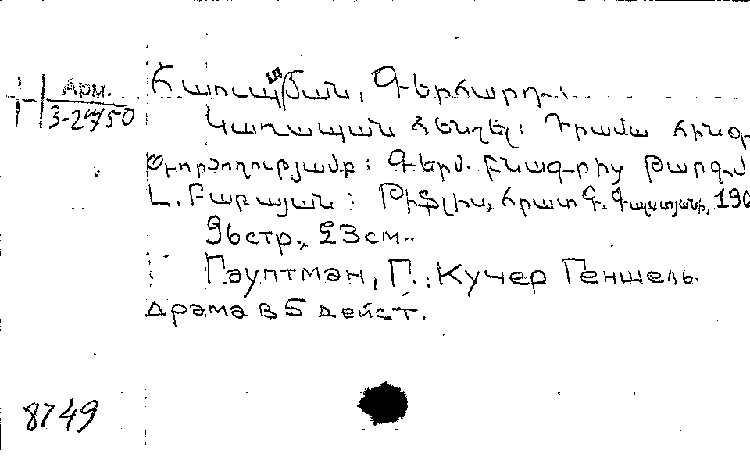 Арм.
3-24/50
Հաուպտման, Գերհարդ.
Կառապան Հենշել: Դրամա հինգ
գործողությամբ: Գերմ. բնագրից թարգմ.
Լ. Բաբայան: Թիֆլիս, հրատ. Գ. 190
96стр., 23см.
Гауптман, Г.: Кучер Геншель
драма в 5 дейст.
8749